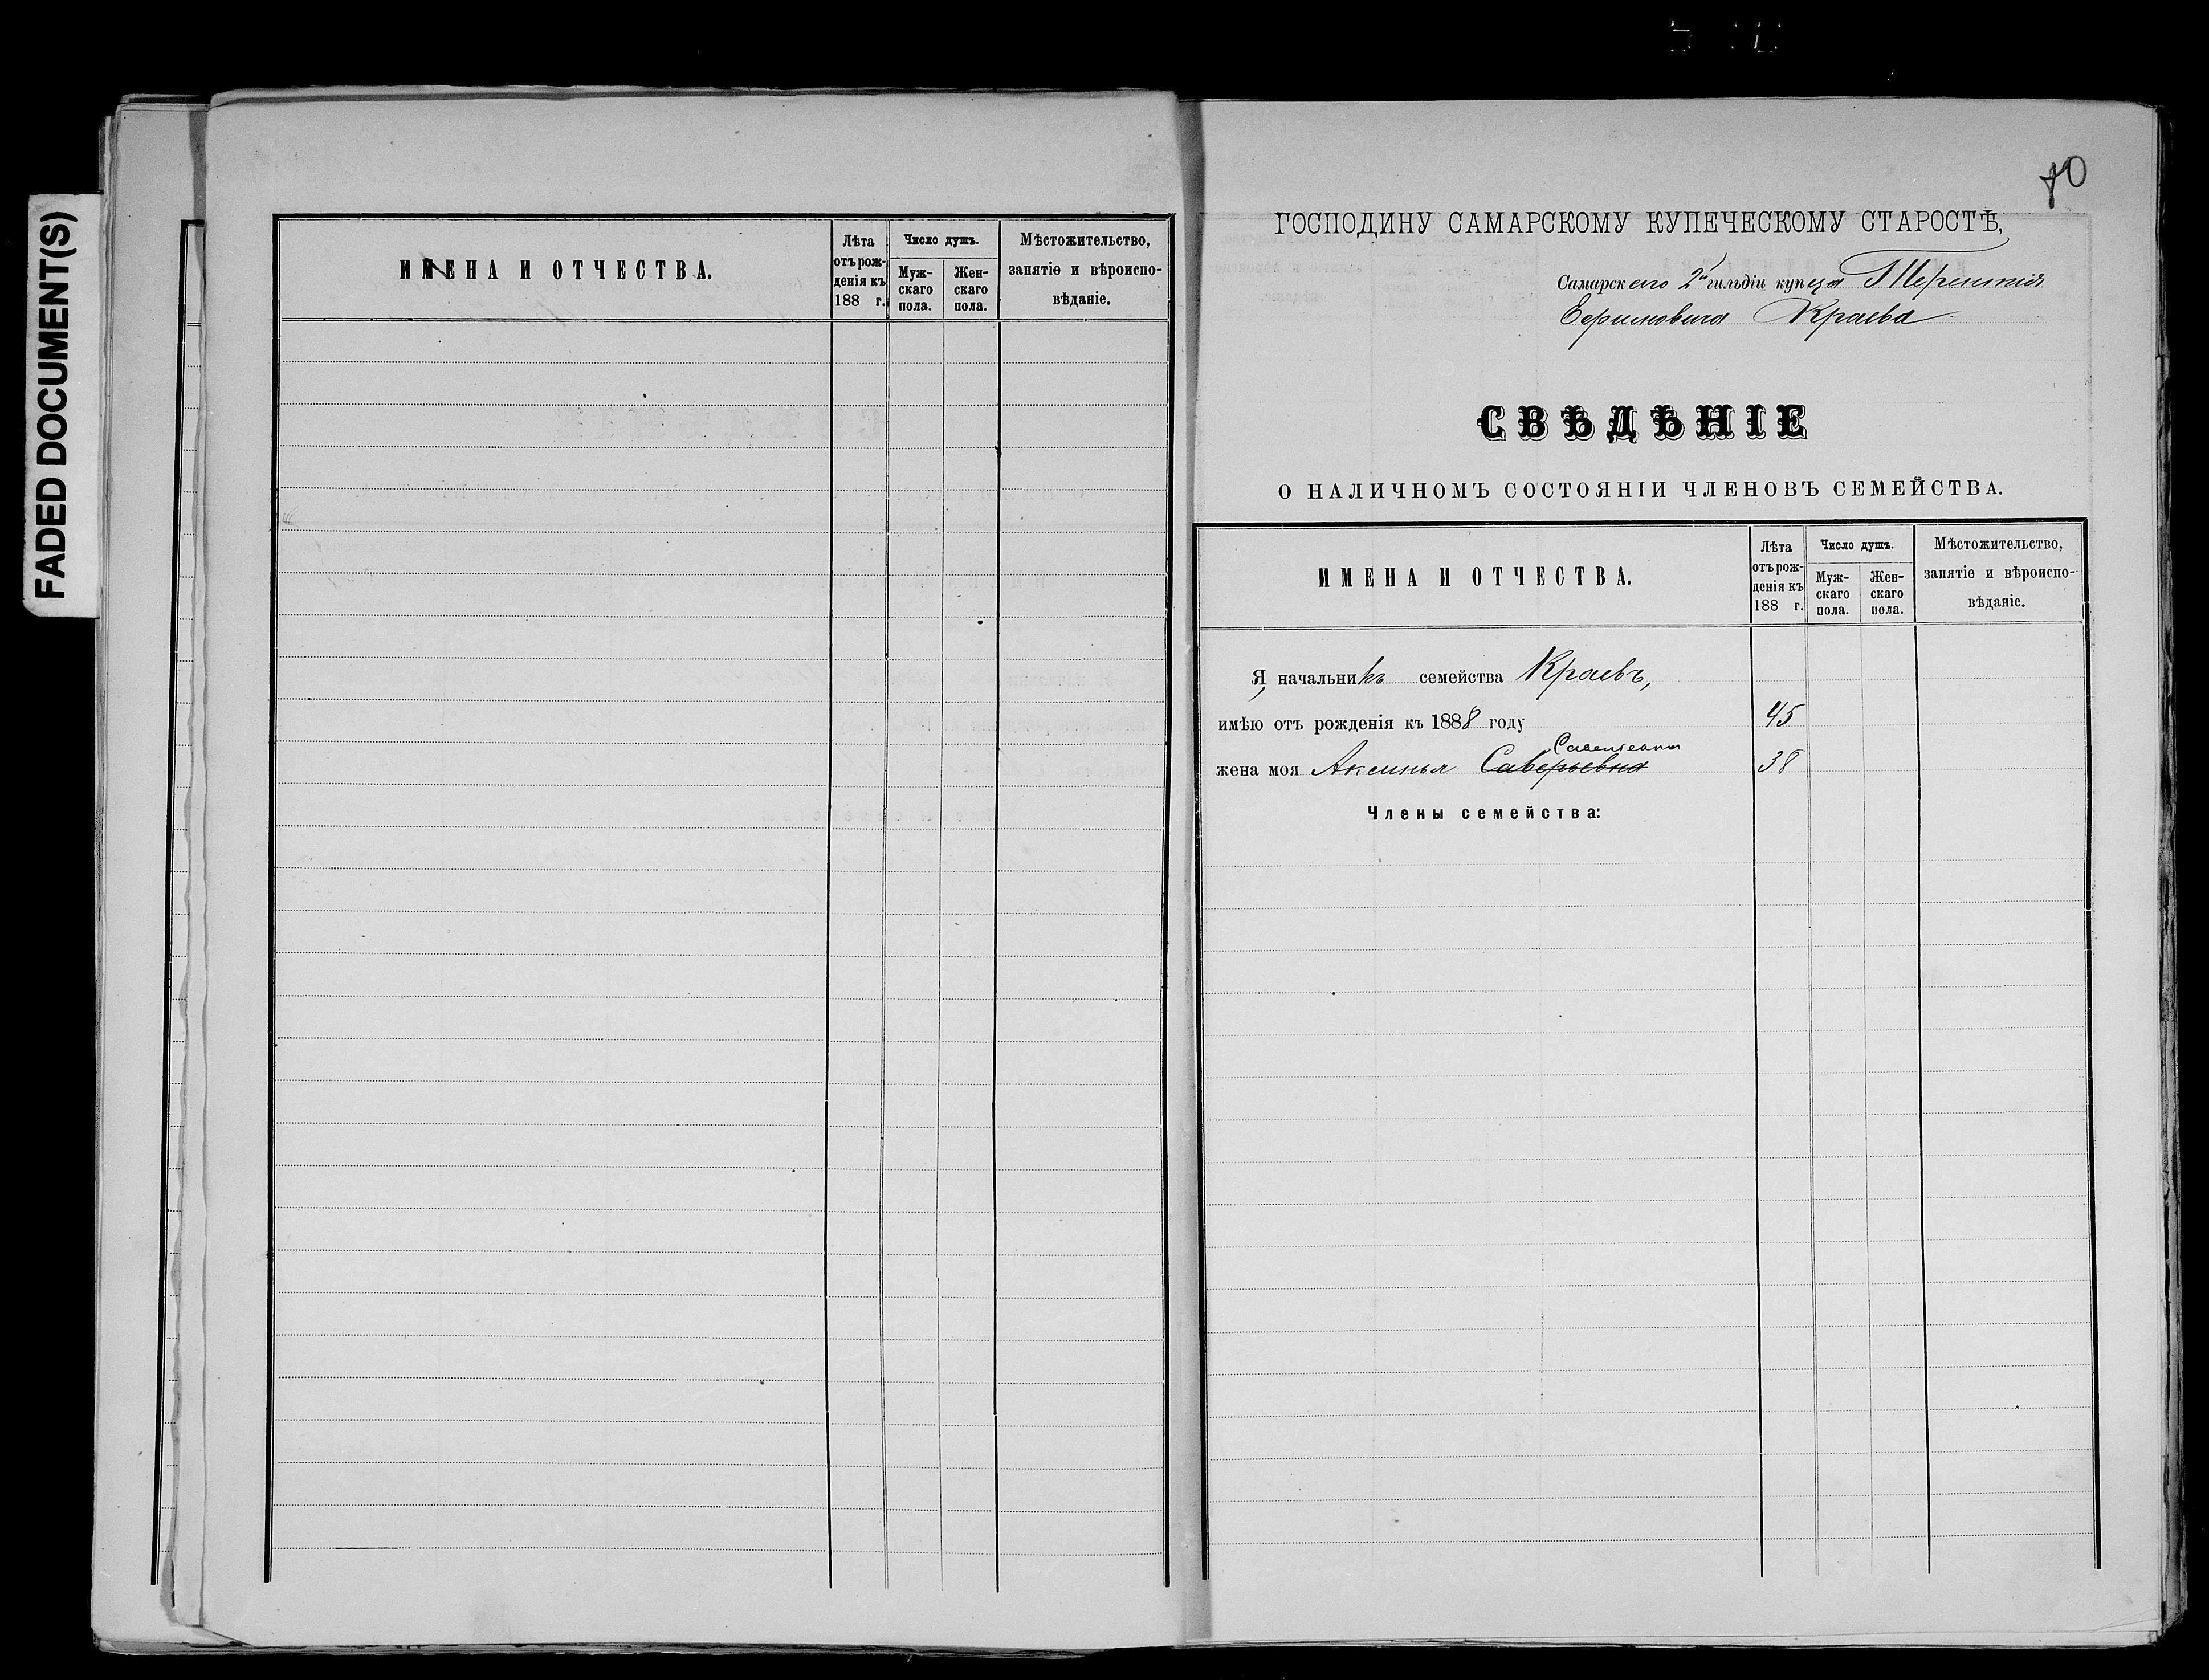 FADED DOCUMENT(S)
ИМЕНА И ОТЧЕСТВА.
Лѣта
отъ рож-
денія къ
188 г.
Число душъ.
Муж-
скаго
пола.
Жен-
скаго
пола.
Мѣстожительство,
занятіе и вѣроиспо-
вѣданіе.
ГОСПОДИНУ САМАРСКОМУ КУПЕЧЕСКОМУ СТАРОСТѢ,
Самарскаго 2й гильдіи купца Терентія
Ефимовича Краева
СВѢДѢНІЕ
О НАЛИЧНОМЪ СОСТОЯНІИ ЧЛЕНОВЪ СЕМЕЙСТВА.
ИМЕНА И ОТЧЕСТВА.
Лѣта
отъ рож-
денія къ
188 г.
Число душъ.
Муж-
скаго
пола.
Жен-
скаго
пола.
Мѣстожительство,
занятіе и вѣроиспо-
вѣданіе.
Я, начальникъ семейства Краевъ,
имѣю отъ рожденія къ 1888 году 45
жена моя Аксинья Саверьевна 38
Члены семейства: